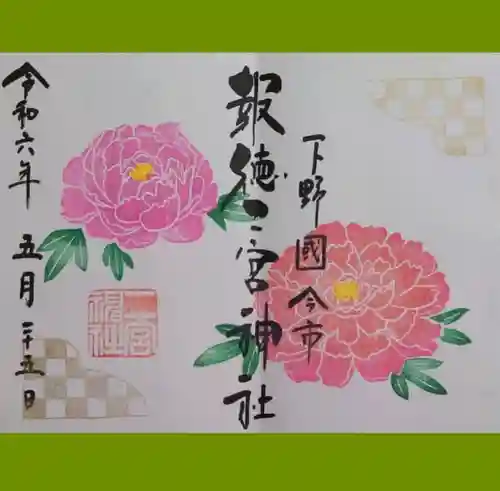 下野國今市
報徳二宮神社
令和六年
五月二十五日
二宮
神社